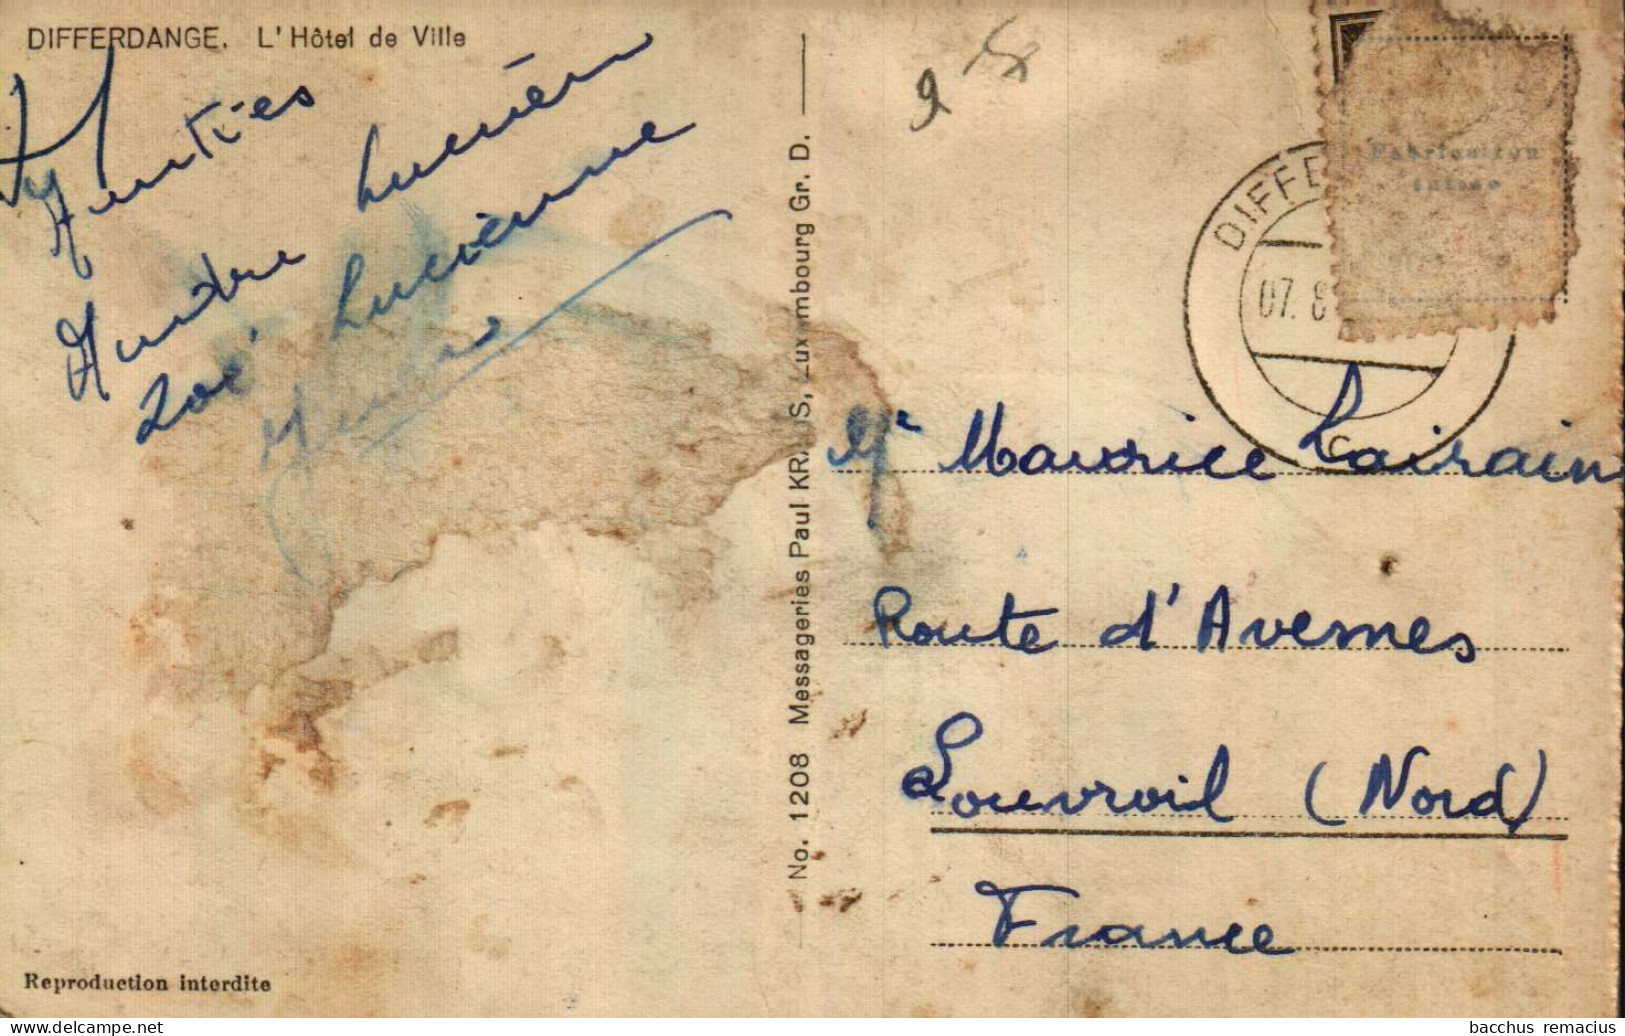 DIFFERDANGE. L'Hôtel de Ville
Amitiés
Lucien
Andrée
Zoé Lucienne
No. 1208 Messageries Paul KRAUS, Luxembourg Gr. D.
DIFFE
07. 8
Fabrication
suisse
Mr Maurice Lairain
Route d'Avesnes
Louvroil (Nord)
France
Reproduction interdite
bacchus remacius